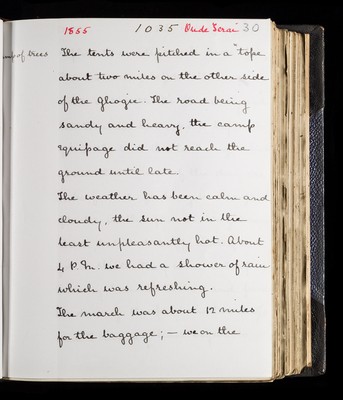 1855 1035 Oude Terai 30
of trees The tents were pitched in a "tope
about two miles on the other side
of the Ghogie. The road being
sandy and heavy, the camp
equipage did not reach the
ground until late.
The weather has been calm and
cloudy, the sun not in the
least unpleasantly hot. About
4 P.M. we had a shower of rain
which was refreshing.
The march was about 12 miles
for the baggage; — we on the